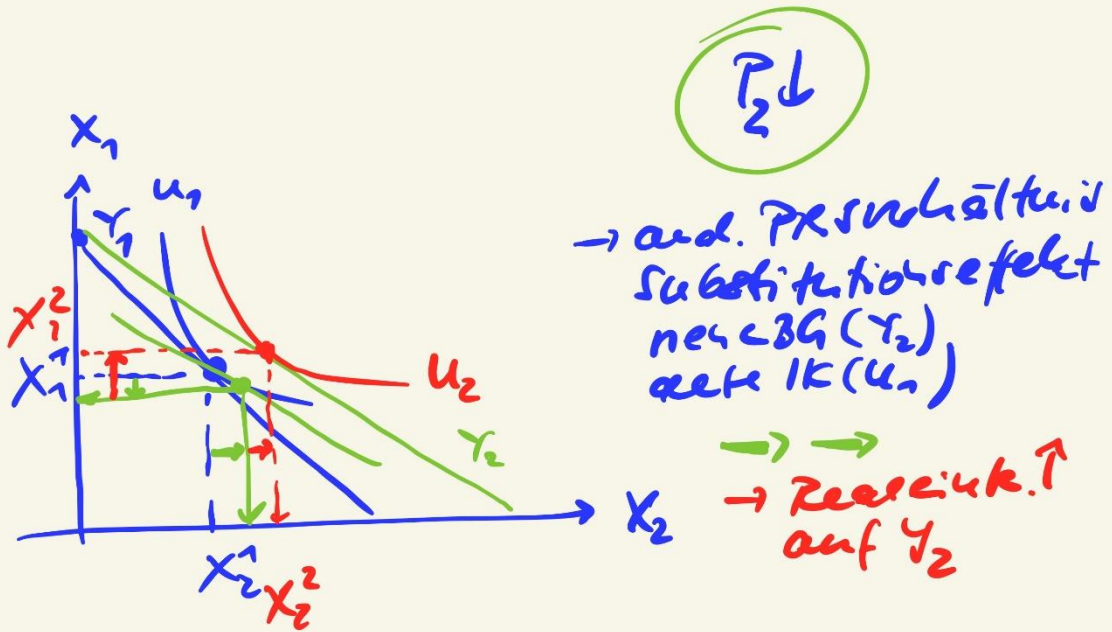 P₂↓
X₁
u₁
Y₁
X₁²
X₁¹
u₂
Y₂
X₂
X₂¹
X₂²
→ and. PRsverhältnis
Substitutionseffekt
neue BG (Y₂)
alte IK (u₁)
→ Realeink. ↑
auf Y₂